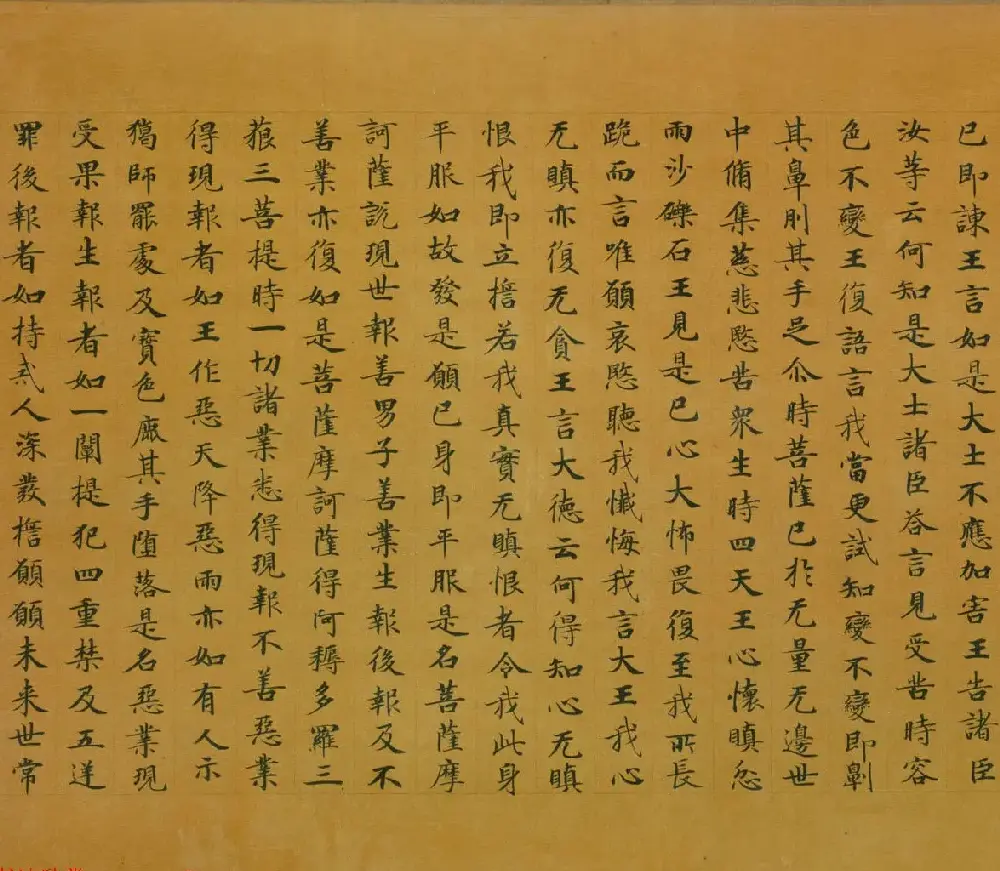 已即諫王言如是大士不應加害王告諸臣
汝等云何知是大士諸臣荅言見受苦時容
色不變王復語言我當更試知變不變即劓
其鼻刖其手足尒時菩薩已於无量无邊世
中脩集慈悲愍苦衆生時四天王心懷瞋忿
雨沙礫石王見是已心大怖畏復至我所長
跪而言唯願哀愍聽我懺悔我言大王我心
无瞋亦復无貪王言大德云何得知心无瞋
恨我即立擔若我真實无瞋恨者令我此身
平服如故發是願已身即平服是名菩薩摩
訶薩說現世報善男子善業生報後報及不
善業亦復如是菩薩摩訶薩得阿耨多羅三
藐三菩提時一切諸業悉得現報不善惡業
得現報者如王作惡天降惡雨亦如有人示
獦師羆處及寶色廌其手墮落是名惡業現
受果報生報者如一闡提犯四重禁及五逆
罪後報者如持戒人深發擔願願未来世常